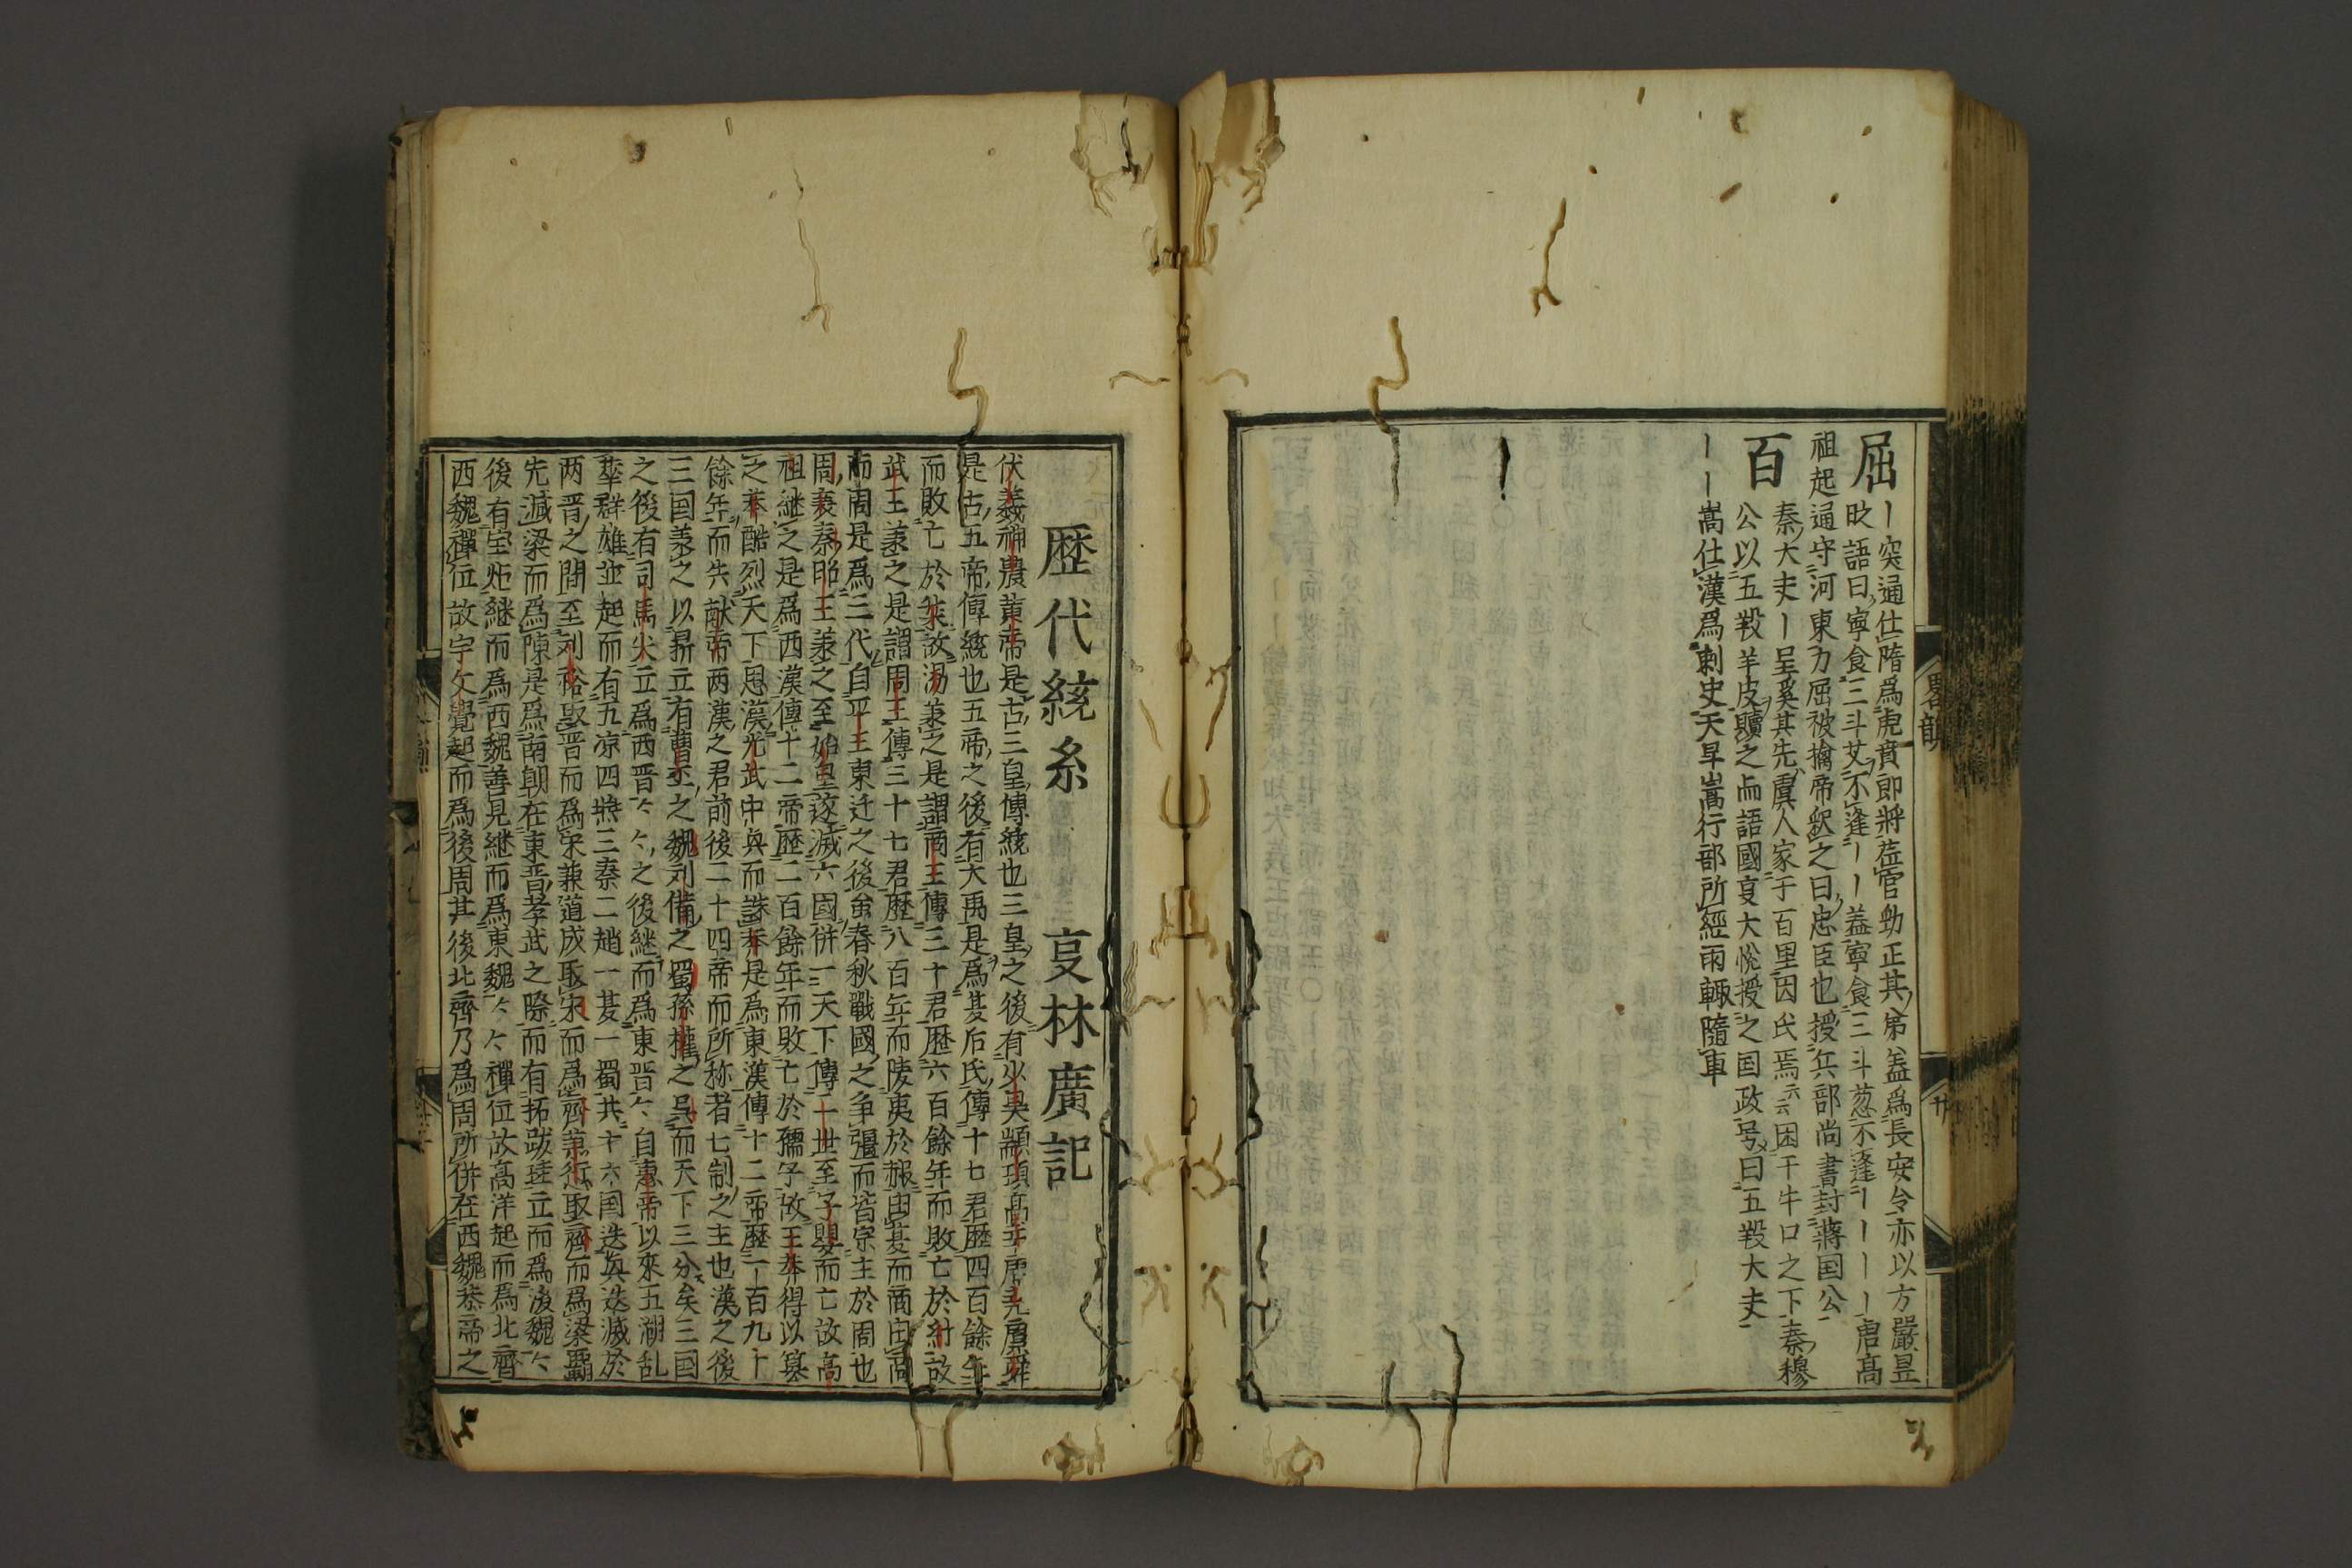 屈｜突通仕隋爲虎賁郎將莅官勁正其弟盖爲長安令亦以方嚴昱
㫼語曰寧食三斗艾不逢｜｜盖寧食三斗葱不逢｜｜｜｜唐高
祖起通守河東力屈被擒帝釈之曰忠臣也授兵部尚書封蔣国公
百秦大夫｜呈奚其先虞人家于百里因氏焉六六困于牛口之下秦穆
公以五羖羊皮贖之與語國事大悅授之国政号曰五羖大夫
｜｜嵩仕漢爲刺史天旱嵩行部所經雨輙隨車
畧韻
廿
歴代統系 事林廣記
伏羲神農黄帝是古三皇傳統也三皇之後有少昊顓頊高辛唐尭虞舜
是古五帝傳統也五帝之後有大禹是爲夏后氏傳十七君歴四百餘年
而敗亡於桀故湯兼之是謂商王傳三十君歴六百餘年而敗亡於紂故
武王兼之是謂周王傳三十七君歴八百年而陵夷於赧由夏而商由商
而周是爲三代自平王東迁之後 春秋戰國之争彊而皆宗主於周也
周衰秦昭王兼之至始皇遂滅六國併一天下傳二世至子嬰而亡故高
祖継之是爲西漢傳十二帝歴二百餘年而敗亡於孺子故王莽得以篡
之莽酷烈天下思漢光武中興而誅莽是爲東漢傳十二帝歴一百九十
餘年而失献帝両漢之君前後二十四帝而所称者七制之主也漢之後
三国兼之以昜立有曹丕之魏刘備之蜀孫權之呉而天下三分矣三国
之後有司馬炎立爲西晋々々之後継而爲東晋々自惠帝以來五湖乱
華群雄並起而有五凉四燕三秦二趙一夏一蜀共十六国迭興迭滅於
两晋之間至刘裕取晋而爲宋兼道成取宋而爲齊蕭衍取齊而爲梁覇
先滅梁而爲陳是爲南朝在東晋孝武之際而有拓跋珪立而爲後魏々
後有宝炬継而爲西魏善見継而爲東魏々々禪位故高洋起而爲北齊
西魏禪位故宇文覺起而爲後周其後北齊乃爲周所併在西魏恭帝之